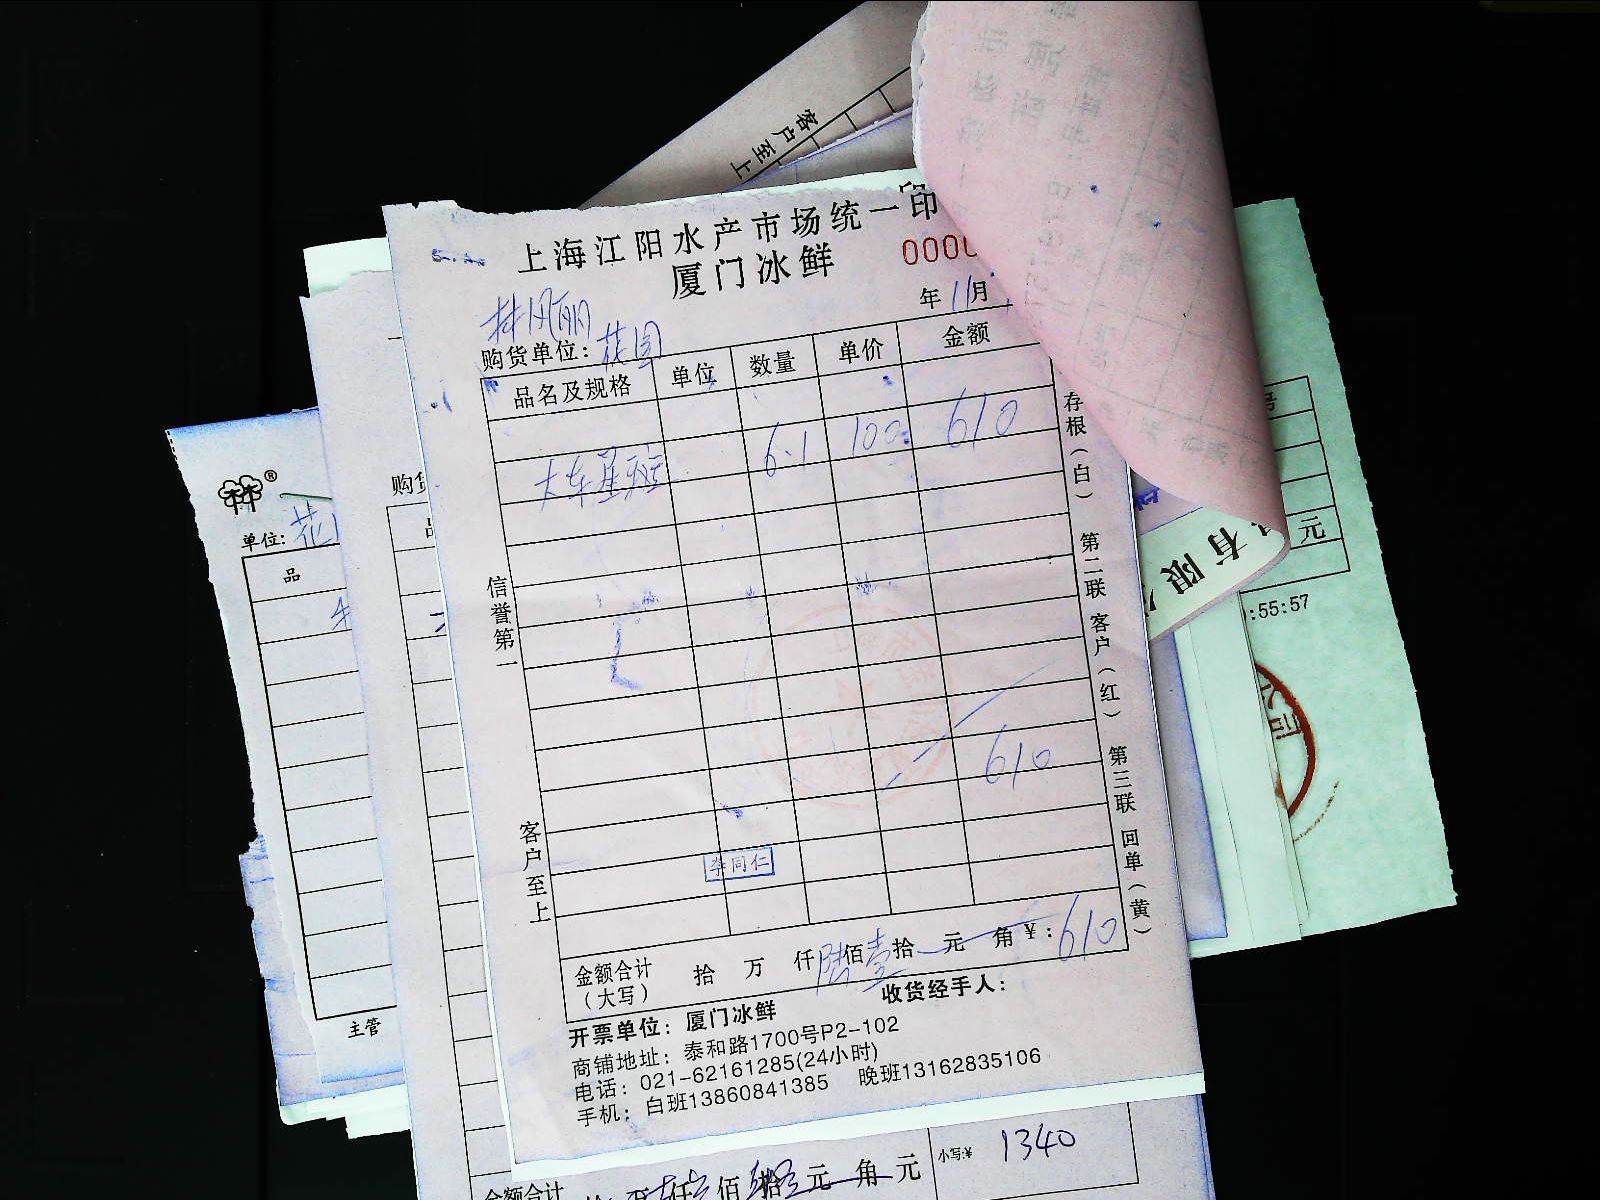 客户至上
上海江阳水产市场统一印
厦门冰鲜
0000
年 11月
林凤丽
购货单位：花园
品名及规格 单位 数量 单价 金额
大东星斑 6.1 100 610
610
信誉第一
客户至上
存根（白） 第二联 客户（红） 第三联 回单（黄）
李同仁
金额合计（大写） 拾 万 仟 陆佰壹拾 元 角 ￥：610
收货经手人：
开票单位：厦门冰鲜
商铺地址：泰和路1700号P2-102
电话：021-62161285(24小时)
手机：白班13860841385 晚班13162835106
林®
单位：花
品
主管
购货
有限
元
:55:57
金额合计 仟 佰 拾 元 角 元 小写:¥ 1340